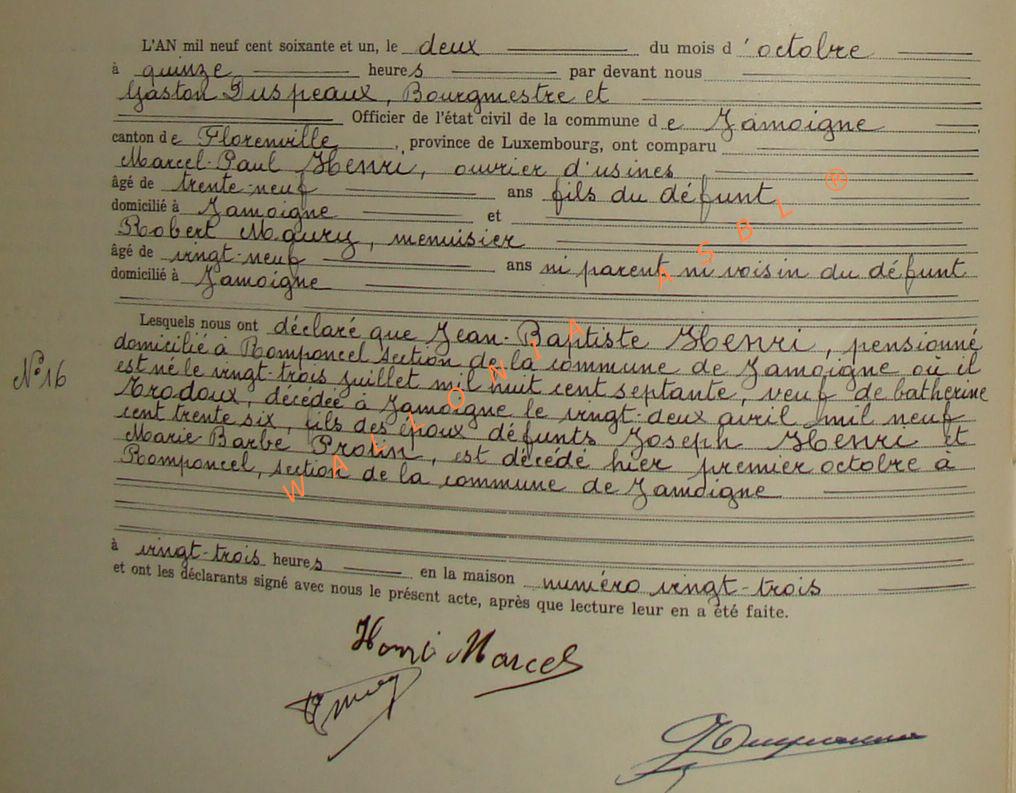 L'AN mil neuf cent soixante et un, le deux du mois d'octobre
à quinze heures par devant nous
Gaston Duspeaux, Bourgmestre et
Officier de l'état civil de la commune de Jamoigne
canton de Florenville, province de Luxembourg, ont comparu
Marcel-Paul Henri, ouvrier d'usines
âgé de trente-neuf ans fils du défunt
domicilié à Jamoigne et
Robert Maury, menuisier
âgé de vingt-neuf ans ni parent ni voisin du défunt
domicilié à Jamoigne
Lesquels nous ont déclaré que Jean-Baptiste Henri, pensionné
domicilié à Romponcel section de la commune de Jamoigne où il
N° 16
est né le vingt-trois juillet mil huit cent septante, veuf de Catherine
Trodoux, décédée à Jamoigne le vingt-deux avril mil neuf
cent trente six, fils des époux défunts Joseph Henri et
Marie Barbe Protin, est décédé hier premier octobre à
Romponcel, section de la commune de Jamoigne
à vingt-trois heures en la maison numéro vingt-trois
et ont les déclarants signé avec nous le présent acte, après que lecture leur en a été faite.
Henri Marcel
WALLONIA ASBL ®